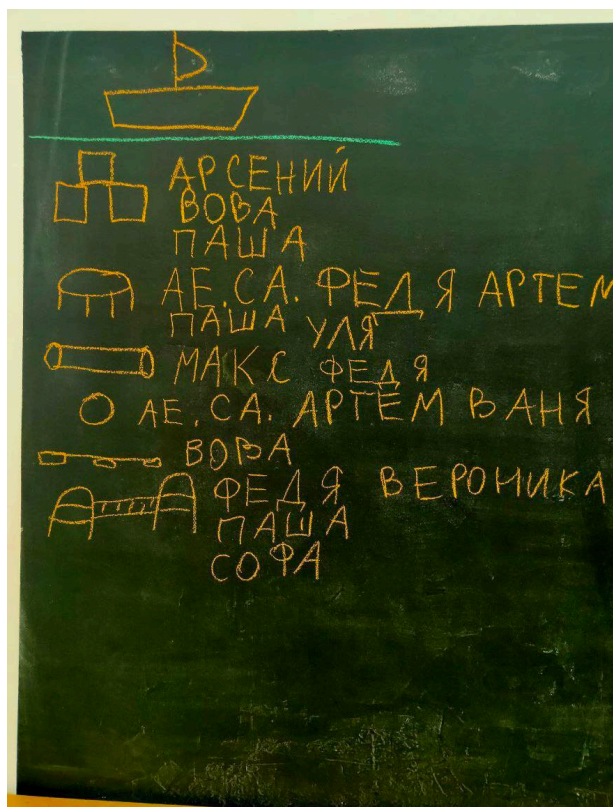 АРСЕНИЙ
ВОВА
ПАША
АЕ.СА. ФЕДЯ АРТЕМ
ПАША УЛЯ
МАКС ФЕДЯ
АЕ.СА. АРТЕМ ВАНЯ
ВОВА
ФЕДЯ ВЕРОНИКА
ПАША
СОФА